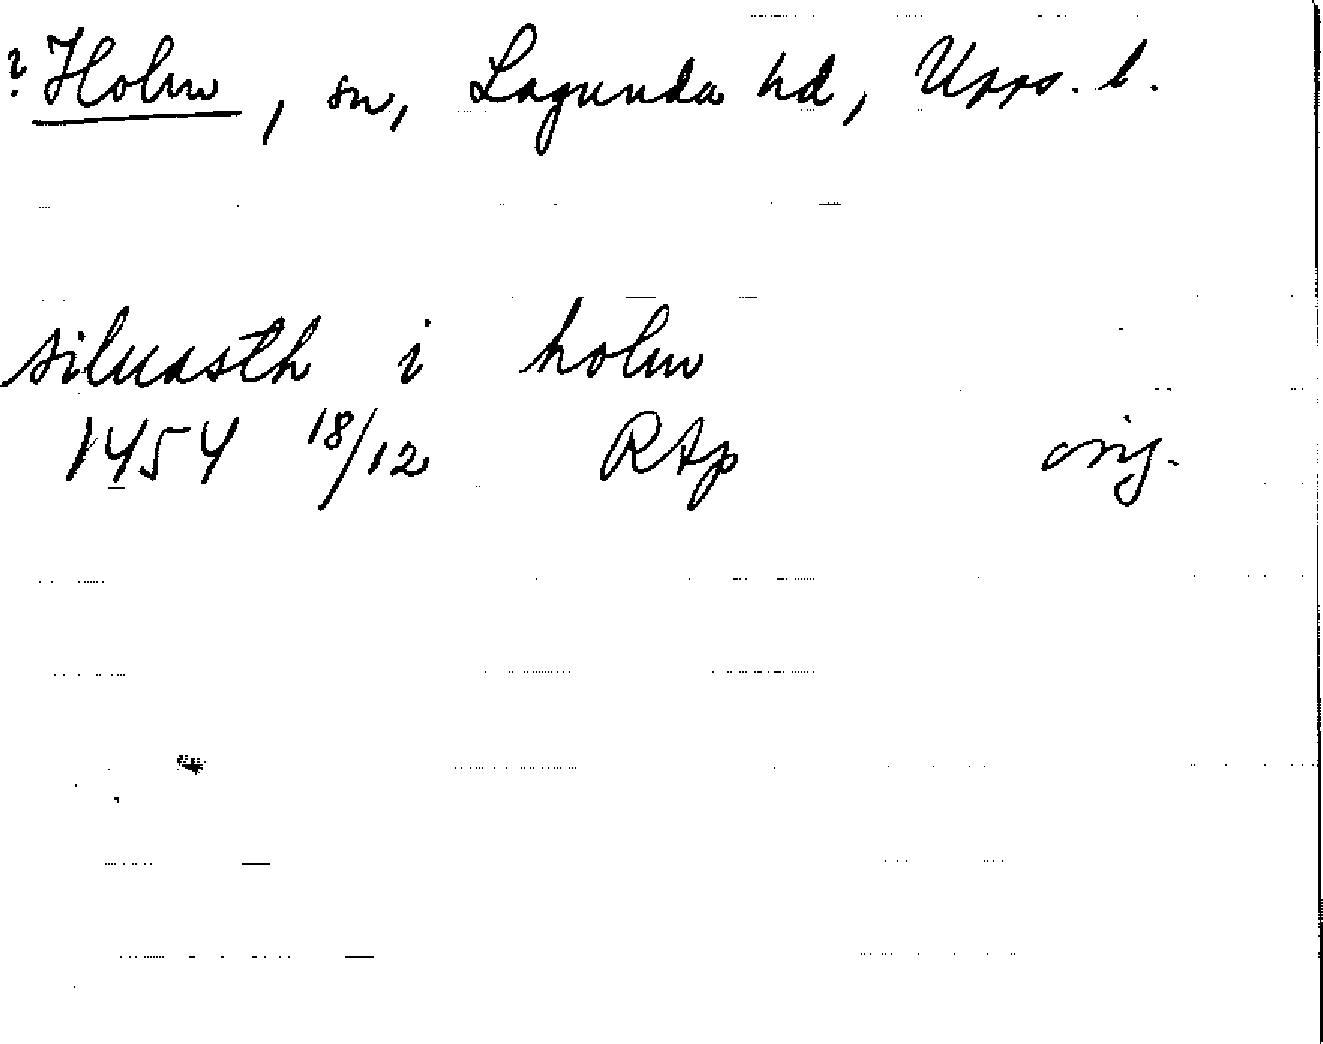 ? Holm, sn, Lagunda hd, Upps. l.
siluasth i holm
1454 18/12 RAp orig.